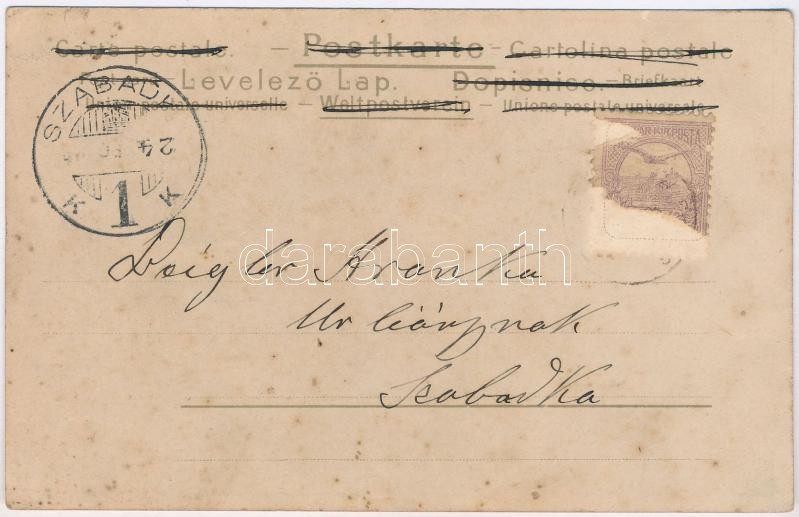 Carte postale — Postkarte — Cartolina postale
Levelező Lap. Dopisnico. — Briefkaart
postale universelle — Weltpostverein — Unione postale universale
SZABADK
24
1
K K
AR·KIR·POSTA
darabanth
Hranka
Úr leánynak
Szabadka